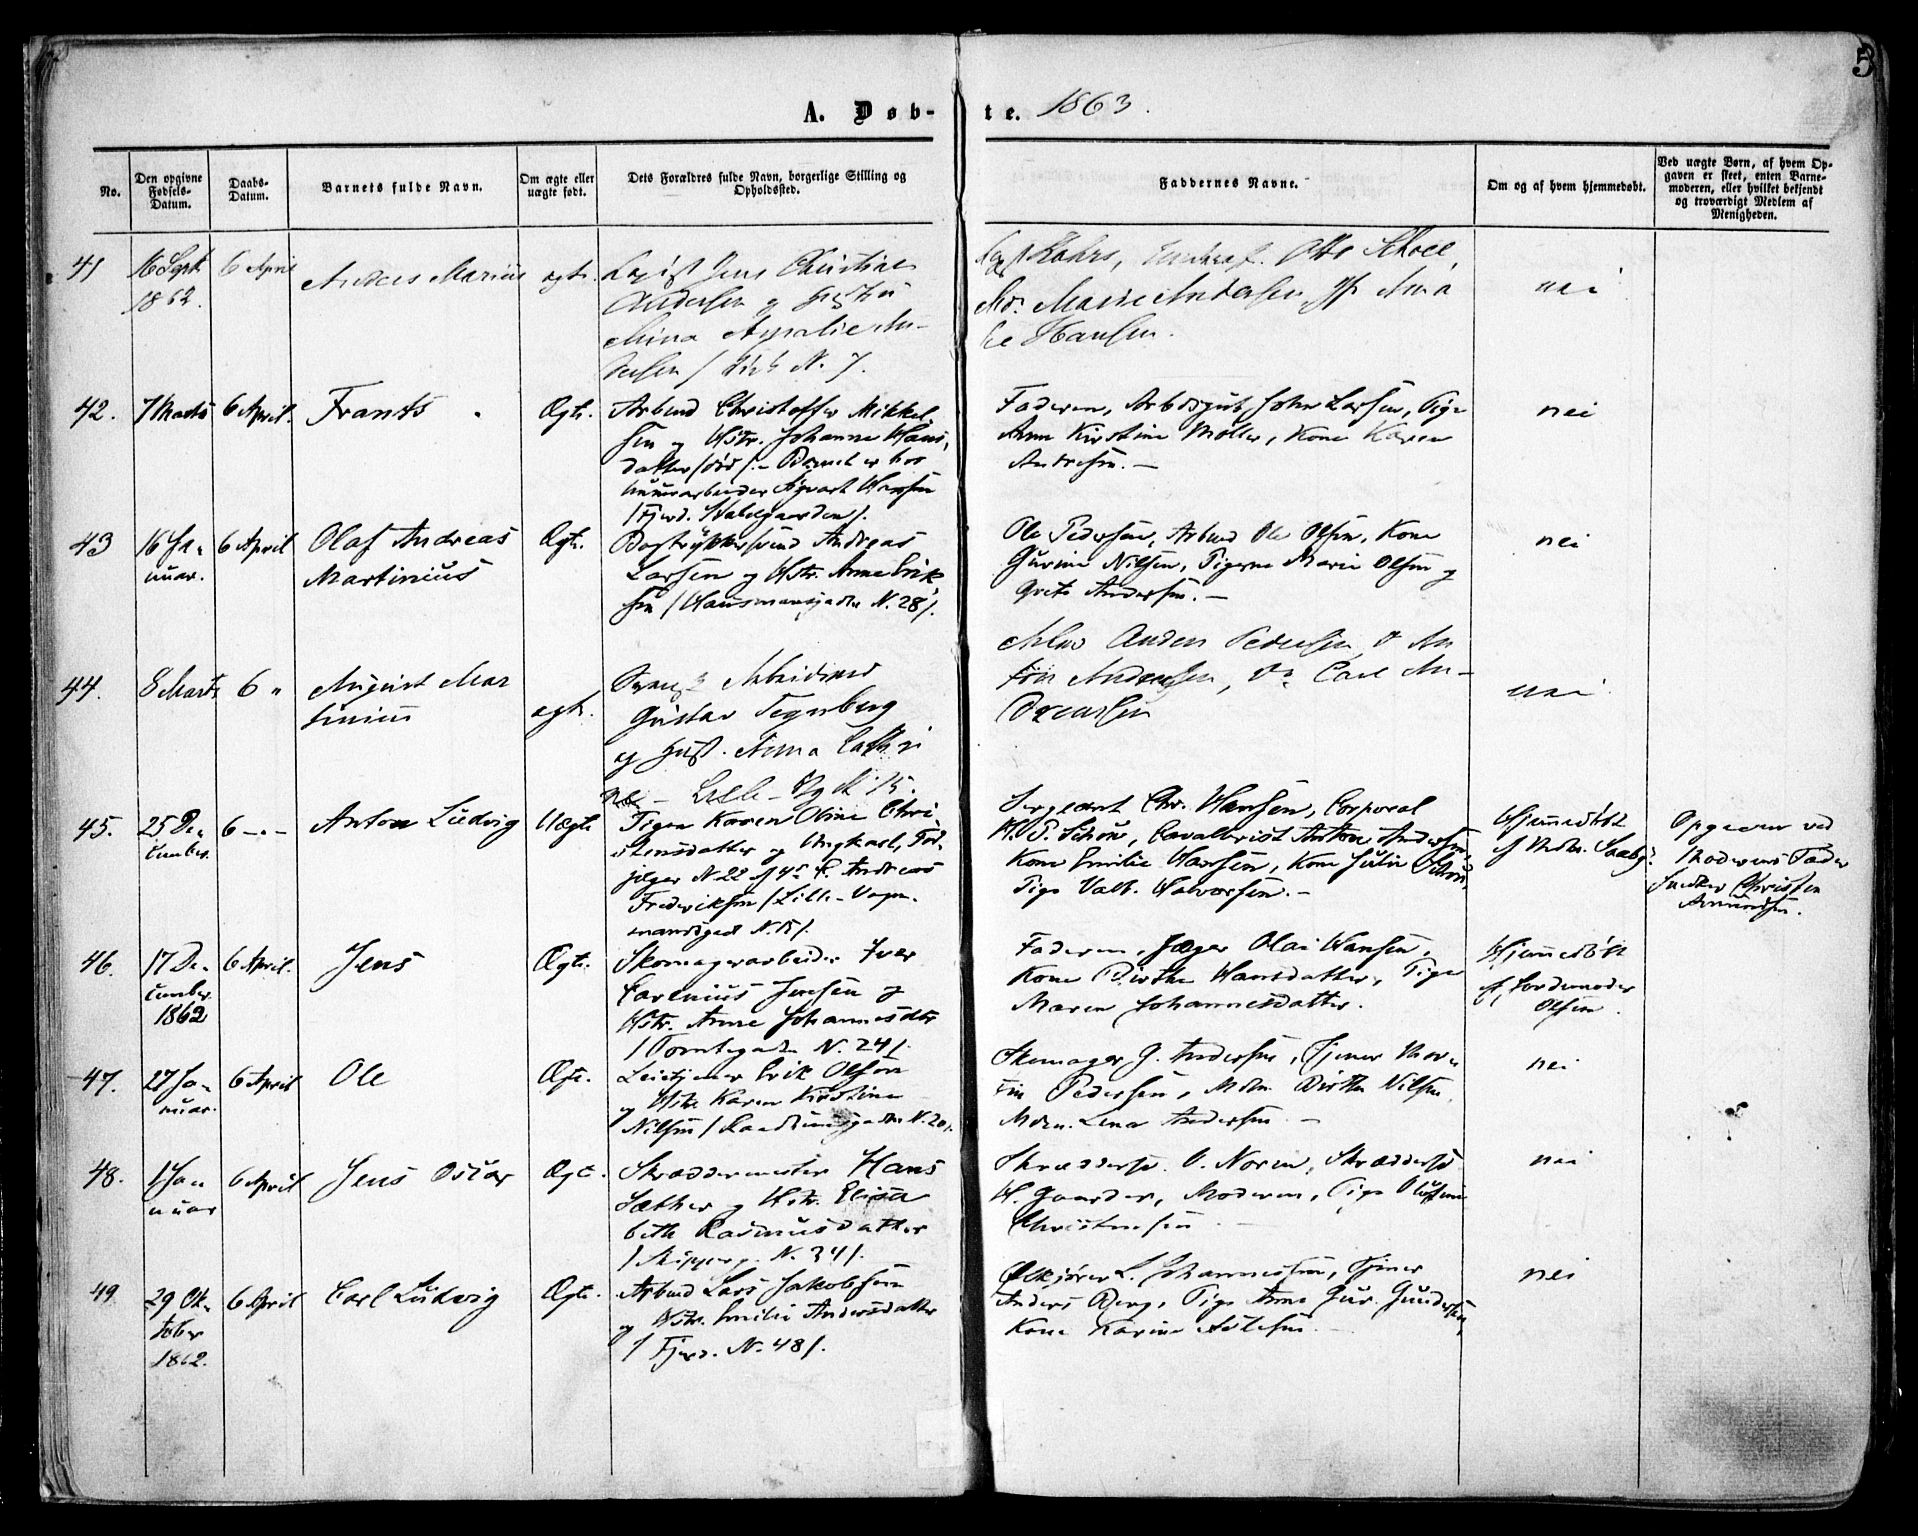 5
A. Døb-te. 1863.
No.
Den opgivne Fødsels-Datum.
Daabs-Datum.
Barnets fulde Navn.
Om ægte eller uægte født.
Dets Forældres fulde Navn, borgerlige Stilling og Opholdssted.
Faddernes Navne.
Om og af hvem hjemmedøbt.
Ved uægte Børn, af hvem Opgaven er skeet, enten Barnemoderen, eller hvilket bekjendt og troværdigt Medlem af Menigheden.
41
16 Sept.
1862.
6 April
Anders Marius
ægte.
Jens Christian
Andersen og Hustru
Mina Amalie An-
dersen N. 7.
Otto
Marie Andersen
Hansen.
nei
42.
7 Marts
6 April.
Frants
Ægte.
Arbmd Christoffer Mikkel
sen og Hstr. Johanne Hans-
datter /død/. - Barnet er hos
Murarbeider Sigvart Hansen
/Fjerd. /.
Faderen, Arbdsgut John Larsen, Pige
Anne Kirstine Møller, Kone Karen
Andresen. -
nei
43
16 Ja-
nuar.
6 April
Olaf Andreas
Martinius
Ægte.
Bogtrykkersvend Andreas
Larsen og Hstr. Anne Erik
sen /Hausmannsgaden N. 28/.
Ole Pedersen, Arbmd Ole Olsen, Kone
Gurine Nilsen, Pigerne Marie Olsen og
Grete Andersen. -
nei
44.
8 Marts
6 "
August Mar
tinius
ægte.
Svensk Arbeidsmd
Gustav Tegnberg
og Hust. Anna Cathri
ne - Lille - N. 15.
Anders Pedersen, An
ton Andersen, Do Carl An-
dreassen
nei
45.
25 De-
cember.
6 - " -
Anton Ludvig
Uægte
Pigen Karen Oline Chri-
stensdatter og Ungkarl,
Jæger N. 22 af Andreas
Frederiksen /Lille-Vogn-
mandsgade N. 15/.
Sergeant Chr. Hansen, Corporal
H. P. Schou, Cavallerist Anton Andersen,
Kone Emilie Hansen, Kone Julie Schou
Pige Valb. Halvorsen. -
Hjemmedøbt
af Mdm. Saaby.
Opgaven ved
Moderens Fader
Snedker Christen
Amundsen.
46.
17 De-
cember.
1862
6 April.
Jens
Ægte.
Skomagerarbeider Iver
Carenius Jensen og
Hstr. Anne Johannesdtr
/Tomtegaden N. 24/.
Faderen, Jæger Olai Hansen,
Kone Birthe Hansdatter, Pige
Maren Johannesdatter.
Hjemmedøbt
af Jordemoder
Olsen.
47.
27 Ja-
nuar.
6 April
Ole
Ægte.
Leietjener Erik Olsen
og Hstr Karen Kirstine
Nilsen / N. 20/.
Skomager G. Andersen, Tjener
Pedersen, Mdm. Birthe Nilsen,
Mdm. Lena Andersen -
nei
48.
1 Ja-
nuar
6 April
Jens Oscar
Ægte.
Skræddermester Hans
Sæther og Hstr. Elisa
beth Rasmusdatter
/Skipperg. N. 34/.
Skræddersv. O. Noren, Skræddersv.
H. Gaarder, Moderen, Pige
Christensen -
nei
49
29 Ok-
tober
1862.
6 April
Carl Ludvig
Ægte.
Arbmd Lars Jakobsen
og Hstr. Emilie Andersdatter
/ Fjerd. N. 48/.
L. Johannesen, Tjener
Anders Berg, Pige Anne Gur. Gundersen,
Kone Karine -
nei